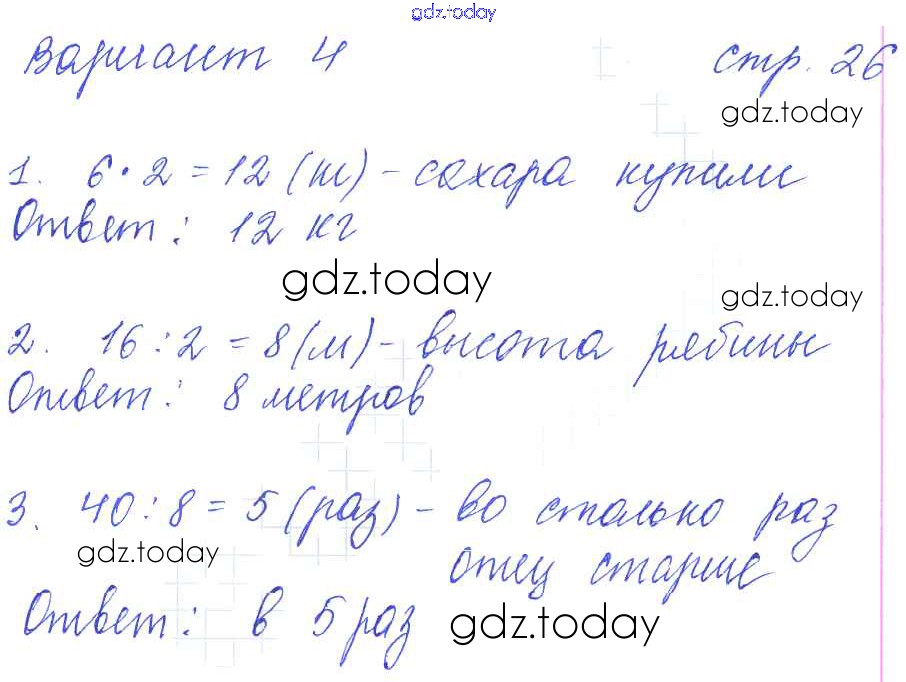 gdz.today
Вариант 4 стр. 26
gdz.today
1. 6 · 2 = 12 (кг) - сахара купили
Ответ: 12 кг
gdz.today
gdz.today
2. 16 : 2 = 8 (м) - высота рябины
Ответ: 8 метров
3. 40 : 8 = 5 (раз) - во столько раз
gdz.today
отец старше
Ответ: в 5 раз
gdz.today